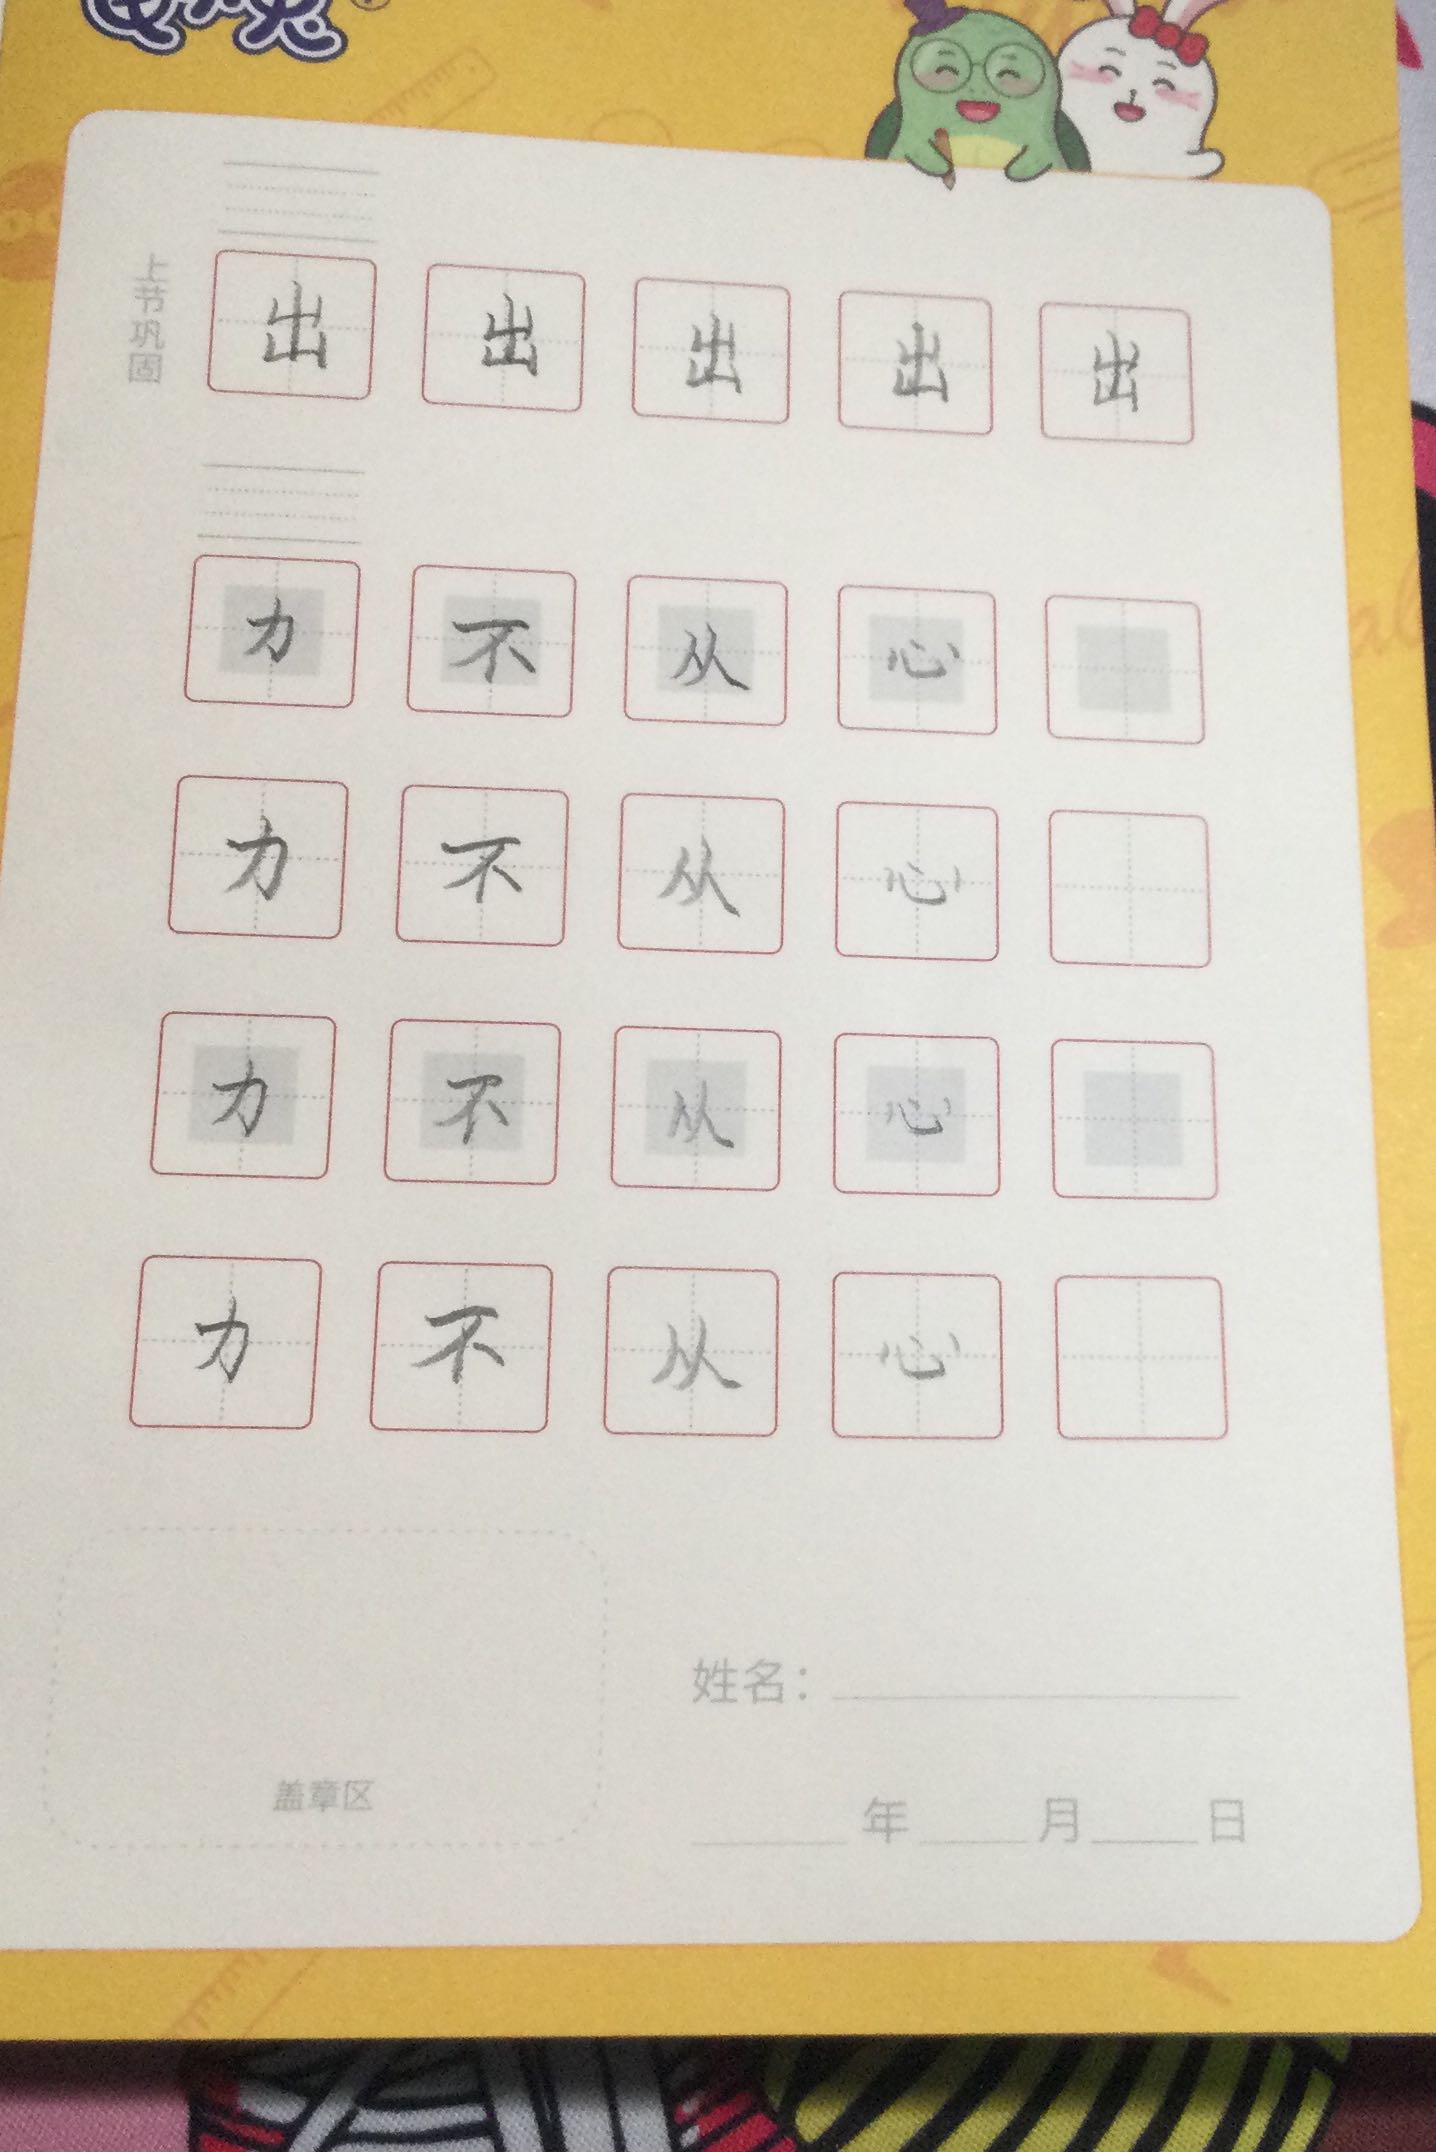 上节巩固
出 出 出 出 出
力 不 从 心
力 不 从 心
力 不 从 心
力 不 从 心
姓名：
盖章区
年 月 日